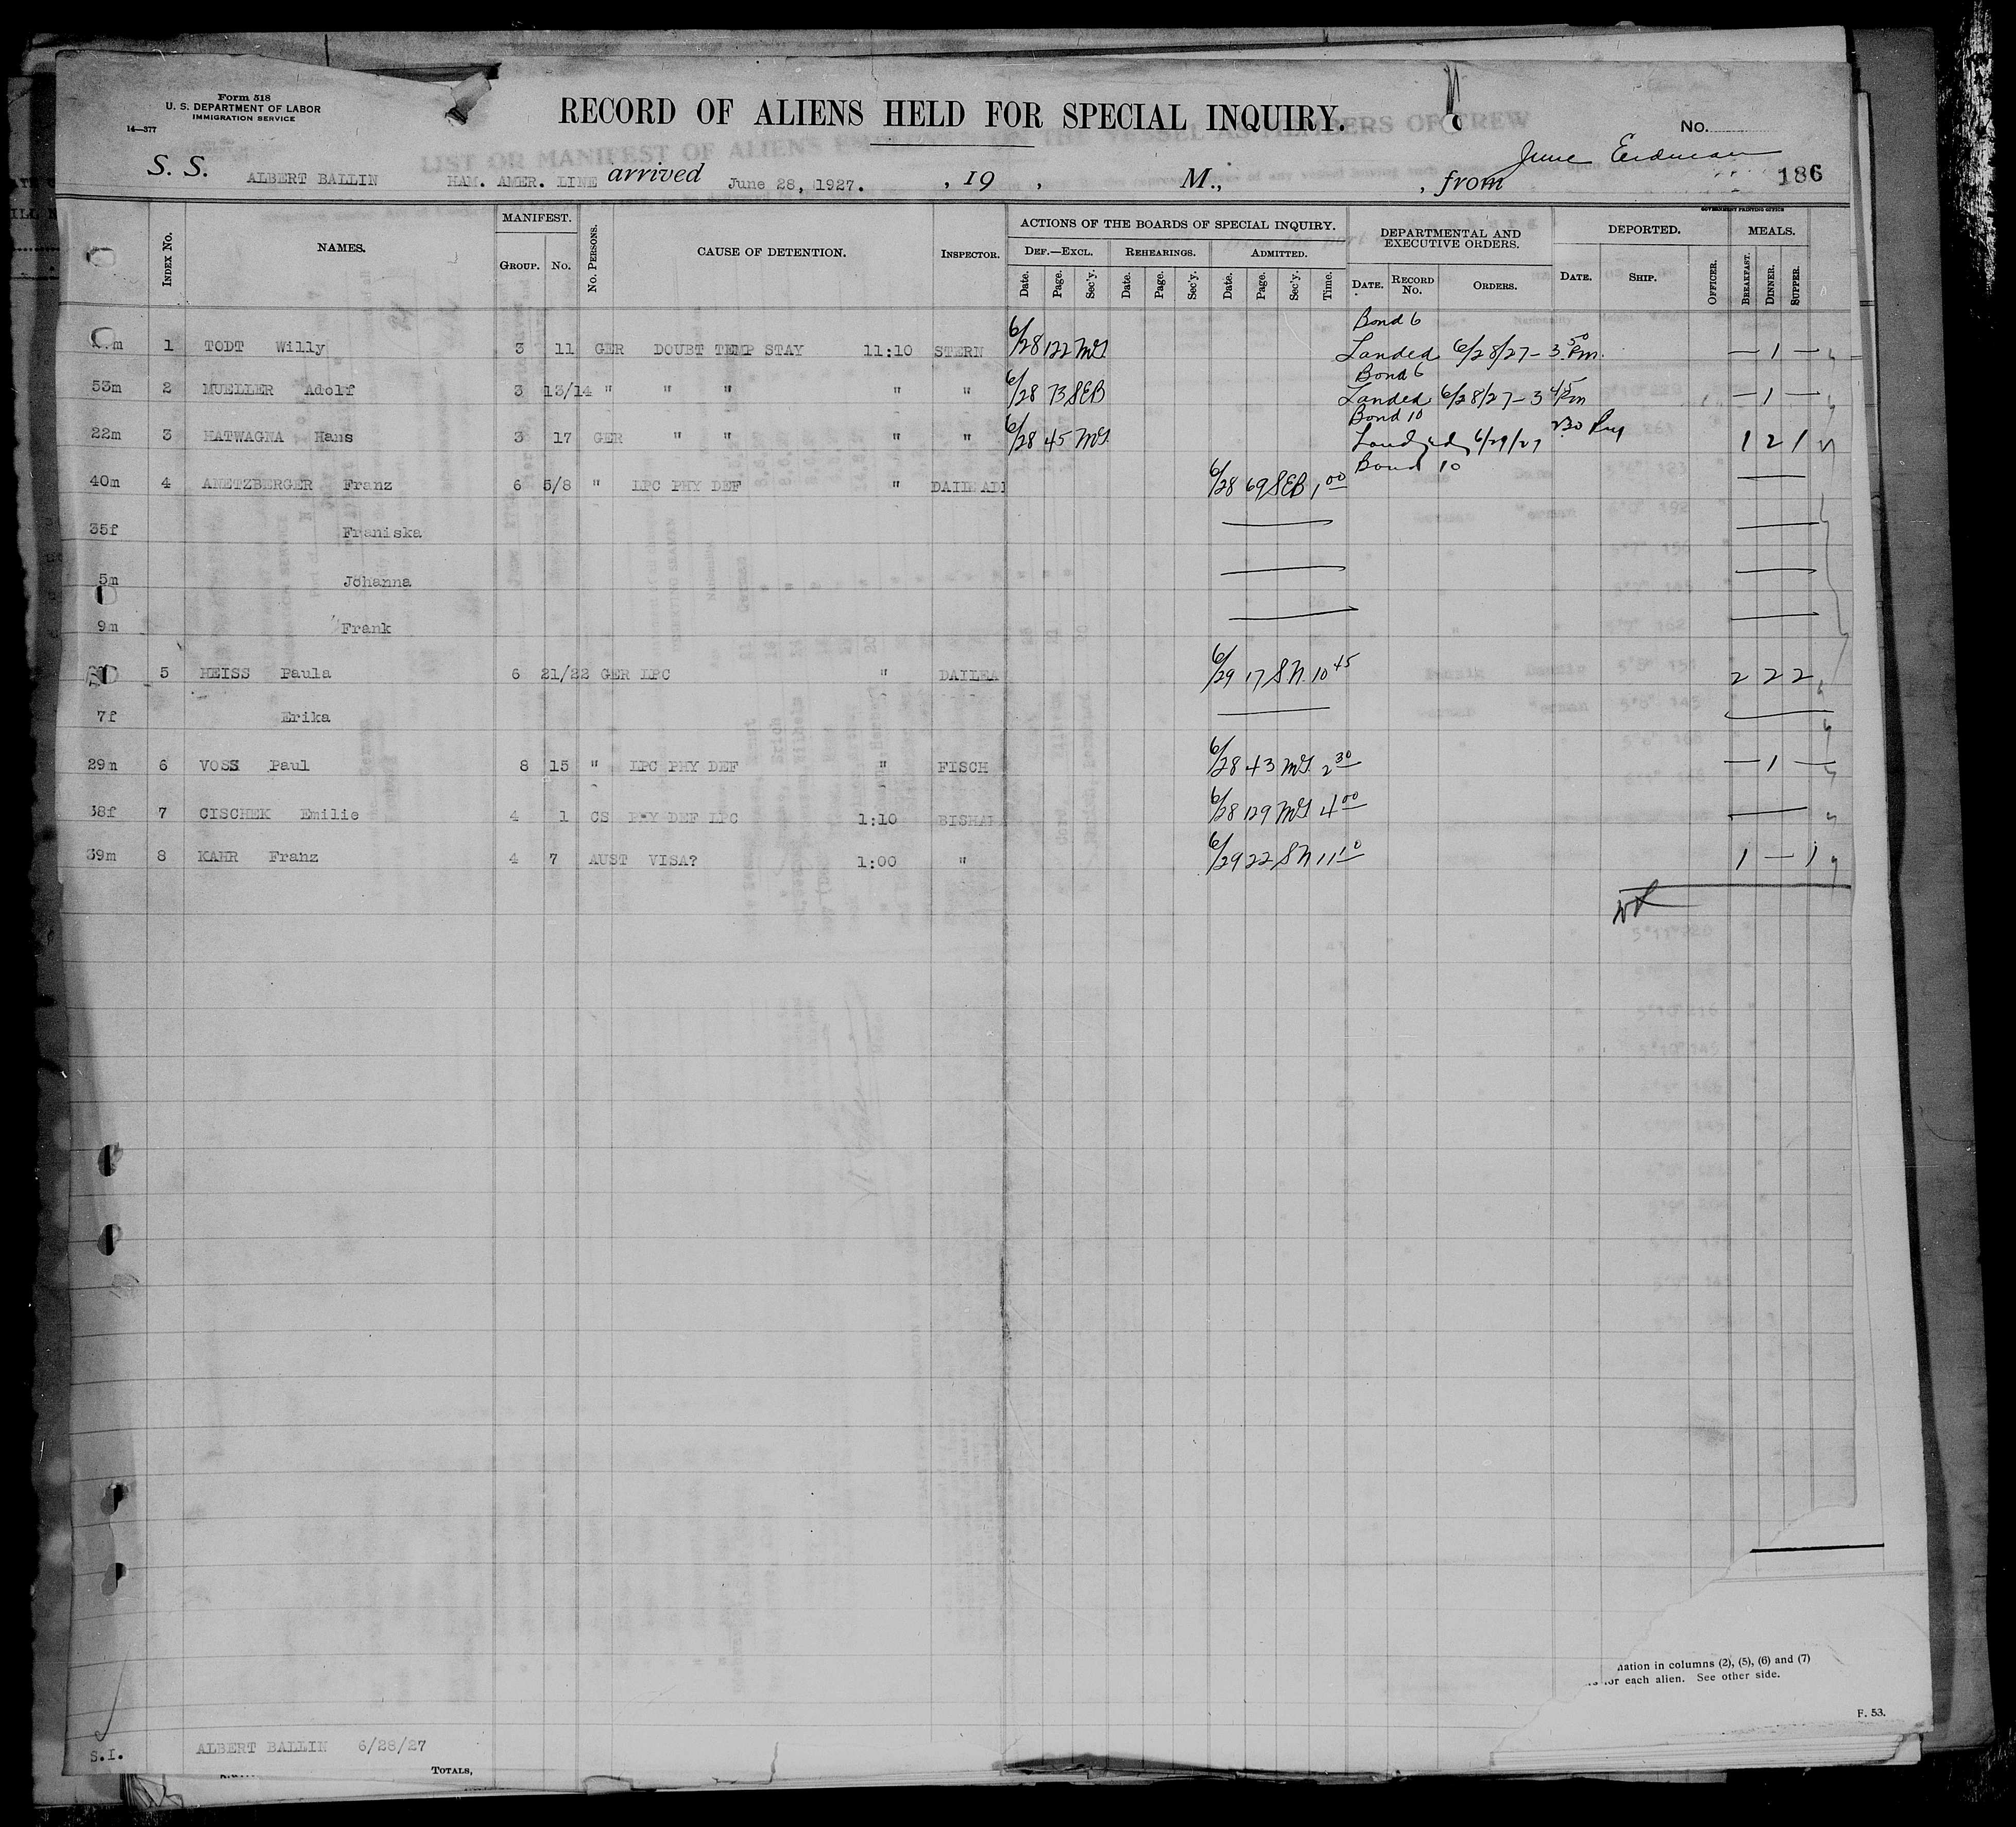 Form 518
U. S. DEPARTMENT OF LABOR
IMMIGRATION SERVICE
14—377
RECORD OF ALIENS HELD FOR SPECIAL INQUIRY.
No.
S. S. ALBERT BALLIN HAM. AMER. LINE arrived June 28, 1927. , 19 , M., , from
June Erdman
186
GOVERNMENT PRINTING OFFICE
INDEX No. NAMES. MANIFEST. GROUP. No. No. PERSONS. CAUSE OF DETENTION. INSPECTOR. ACTIONS OF THE BOARDS OF SPECIAL INQUIRY. DEPARTMENTAL AND EXECUTIVE ORDERS. DEPORTED. MEALS.
DEF.—EXCL. REHEARINGS. ADMITTED.
Date. Page. Sec'y. Date. Page. Sec'y. Date. Page. Sec'y. Time. DATE. RECORD No. ORDERS. DATE. SHIP. OFFICER. BREAKFAST. DINNER. SUPPER.
Bond 6
m 1 TODT Willy 3 11 GER DOUBT TEMP STAY 11:10 STERN 6/28 122 MG Landed 6/28/27 - 3 50 Pm. — 1 —
Bond 6
53m 2 MUELLER Adolf 3 13/14 " " " " " 6/28 73 SEB Landed 6/28/27 - 3 45 Pm — 1 —
Bond 10
22m 3 MATWAGNA Hans 3 17 GER " " " " 6/28 45 MG 6/29/27 230 1 2 1
Bond 10
40m 4 ANETZBERGER Franz 6 5/8 " LPC PHY DEF " 6/28 69 SEB 1 00 —
35f Franiska — —
5m Johanna — —
9m Frank — —
5 HEISS Paula 6 21/22 GER LPC " DAILEA 6/29 17 SN. 10 45 2 2 2
7f Erika — —
29m 6 VOSS Paul 8 15 " LPC PHY DEF " FISCH 6/28 43 MG. 2 30 — 1 —
38f 7 CISCHEK Emilie 4 1 CS PHY DEF LPC 1:10 6/28 129 MG 4 00 —
39m 8 KAHR Franz 4 7 AUST VISA? 1:00 " 6/29 22 SN 11 10 1 — 1
nation in columns (2), (5), (6) and (7)
for each alien. See other side.
F. 53.
S.I. ALBERT BALLIN 6/28/27
TOTALS,